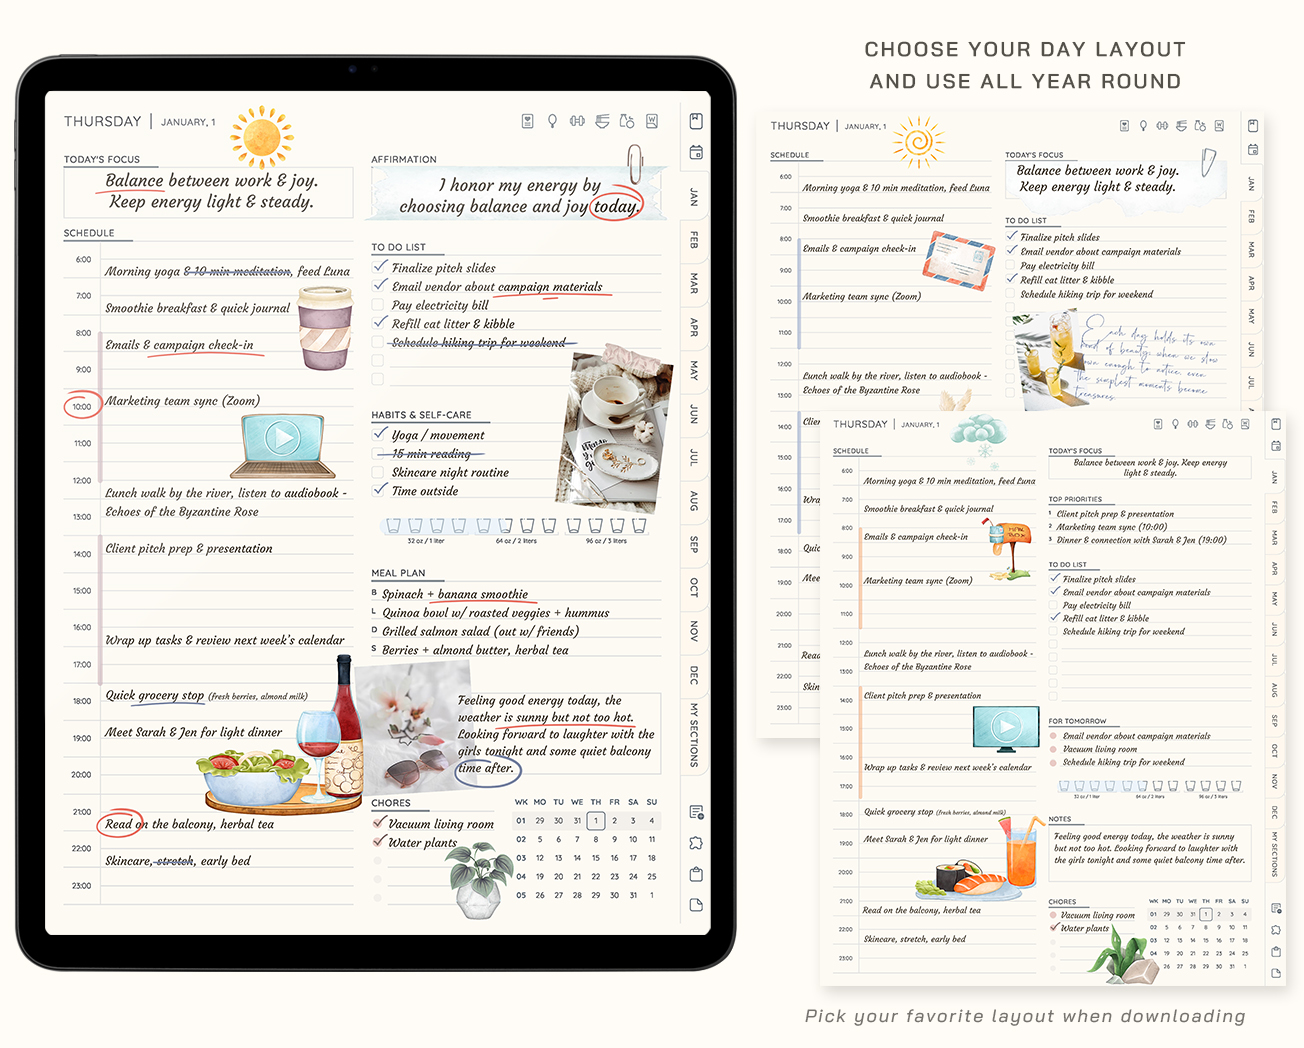 CHOOSE YOUR DAY LAYOUT
AND USE ALL YEAR ROUND
THURSDAY | JANUARY, 1
TODAY'S FOCUS
Balance between work & joy.
Keep energy light & steady.
SCHEDULE
6:00
Morning yoga & 10 min meditation, feed Luna
7:00
Smoothie breakfast & quick journal
8:00
Emails & campaign check-in
9:00
10:00
Marketing team sync (Zoom)
11:00
12:00
Lunch walk by the river, listen to audiobook -
Echoes of the Byzantine Rose
13:00
14:00
Client pitch prep & presentation
15:00
16:00
Wrap up tasks & review next week's calendar
17:00
18:00
Quick grocery stop (fresh berries, almond milk)
19:00
Meet Sarah & Jen for light dinner
20:00
21:00
Read on the balcony, herbal tea
22:00
Skincare, stretch, early bed
23:00
AFFIRMATION
I honor my energy by
choosing balance and joy today.
TO DO LIST
Finalize pitch slides
Email vendor about campaign materials
Pay electricity bill
Refill cat litter & kibble
Schedule hiking trip for weekend
HABITS & SELF-CARE
Yoga / movement
15 min reading
Skincare night routine
Time outside
32 oz / 1 liter
64 oz / 2 liters
96 oz / 3 liters
MEAL PLAN
B Spinach + banana smoothie
L Quinoa bowl w/ roasted veggies + hummus
D Grilled salmon salad (out w/ friends)
S Berries + almond butter, herbal tea
Feeling good energy today, the
weather is sunny but not too hot.
Looking forward to laughter with the
girls tonight and some quiet balcony
time after.
CHORES
Vacuum living room
Water plants
WK MO TU WE TH FR SA SU
01 29 30 31 1 2 3 4
02 5 6 7 8 9 10 11
03 12 13 14 15 16 17 18
04 19 20 21 22 23 24 25
05 26 27 28 29 30 31 1
JAN
FEB
MAR
APR
MAY
JUN
JUL
AUG
SEP
OCT
NOV
DEC
MY SECTIONS
THURSDAY | JANUARY, 1
SCHEDULE
6:00
Morning yoga & 10 min meditation, feed Luna
7:00
Smoothie breakfast & quick journal
8:00
Emails & campaign check-in
9:00
10:00
Marketing team sync (Zoom)
11:00
12:00
Lunch walk by the river, listen to audiobook -
Echoes of the Byzantine Rose
13:00
14:00
Clien
15:00
16:00
Wra
17:00
18:00
Quic
19:00
Mee
20:00
21:00
Read
22:00
Skin
23:00
TODAY'S FOCUS
Balance between work & joy.
Keep energy light & steady.
TO DO LIST
Finalize pitch slides
Email vendor about campaign materials
Pay electricity bill
Refill cat litter & kibble
Schedule hiking trip for weekend
Each day holds its own
kind of beauty, when we slow
down enough to notice, even
the simplest moments become
treasures.
JAN
FEB
MAR
APR
MAY
JUN
JUL
THURSDAY | JANUARY, 1
SCHEDULE
6:00
Morning yoga & 10 min meditation, feed Luna
7:00
Smoothie breakfast & quick journal
8:00
Emails & campaign check-in
9:00
10:00
Marketing team sync (Zoom)
11:00
12:00
Lunch walk by the river, listen to audiobook -
Echoes of the Byzantine Rose
13:00
14:00
Client pitch prep & presentation
15:00
16:00
Wrap up tasks & review next week's calendar
17:00
18:00
Quick grocery stop (fresh berries, almond milk)
19:00
Meet Sarah & Jen for light dinner
20:00
21:00
Read on the balcony, herbal tea
22:00
Skincare, stretch, early bed
23:00
TODAY'S FOCUS
Balance between work & joy. Keep energy
light & steady.
TOP PRIORITIES
1 Client pitch prep & presentation
2 Marketing team sync (10:00)
3 Dinner & connection with Sarah & Jen (19:00)
TO DO LIST
Finalize pitch slides
Email vendor about campaign materials
Pay electricity bill
Refill cat litter & kibble
Schedule hiking trip for weekend
FOR TOMORROW
Email vendor about campaign materials
Vacuum living room
Schedule hiking trip for weekend
32 oz / 1 liter
64 oz / 2 liters
96 oz / 3 liters
NOTES
Feeling good energy today, the weather is sunny
but not too hot. Looking forward to laughter with
the girls tonight and some quiet balcony time after.
CHORES
Vacuum living room
Water plants
WK MO TU WE TH FR SA SU
01 29 30 31 1 2 3 4
02 5 6 7 8 9 10 11
03 12 13 14 15 16 17 18
19 20 21 22 23 24 25
26 27 28 29 30 31 1
JAN
FEB
MAR
APR
MAY
JUN
JUL
AUG
SEP
OCT
NOV
DEC
MY SECTIONS
Pick your favorite layout when downloading